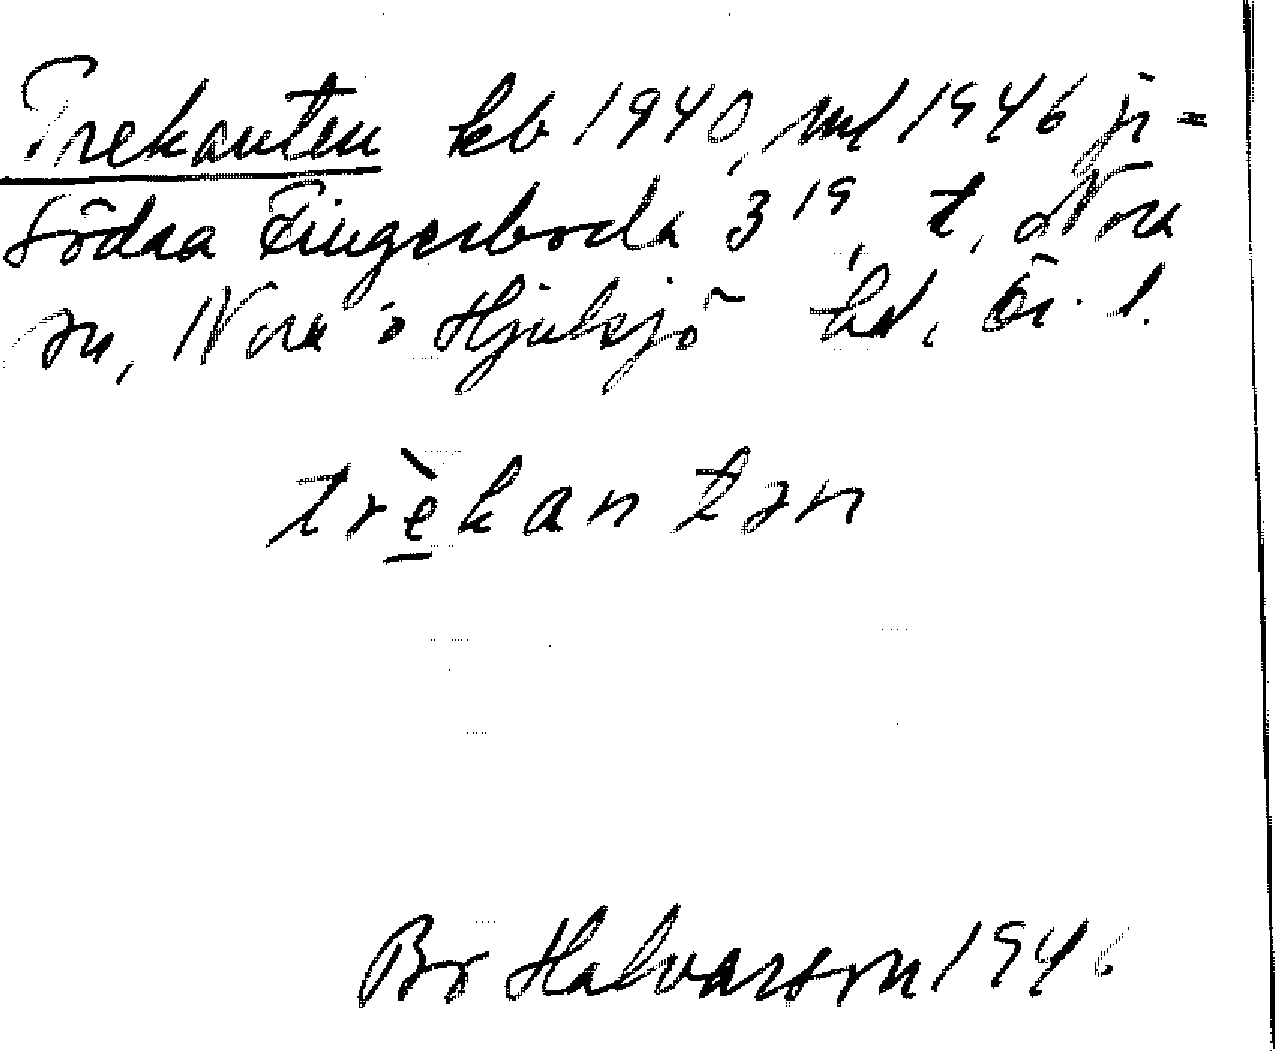 Trekanten kb 1940, ml 1946 ji=
Södra Fingerboda 3 19, t. Nora
sn, Nora o Hjulsjö hd, Ör. l.
trèkantən
Br Halvarson 1946